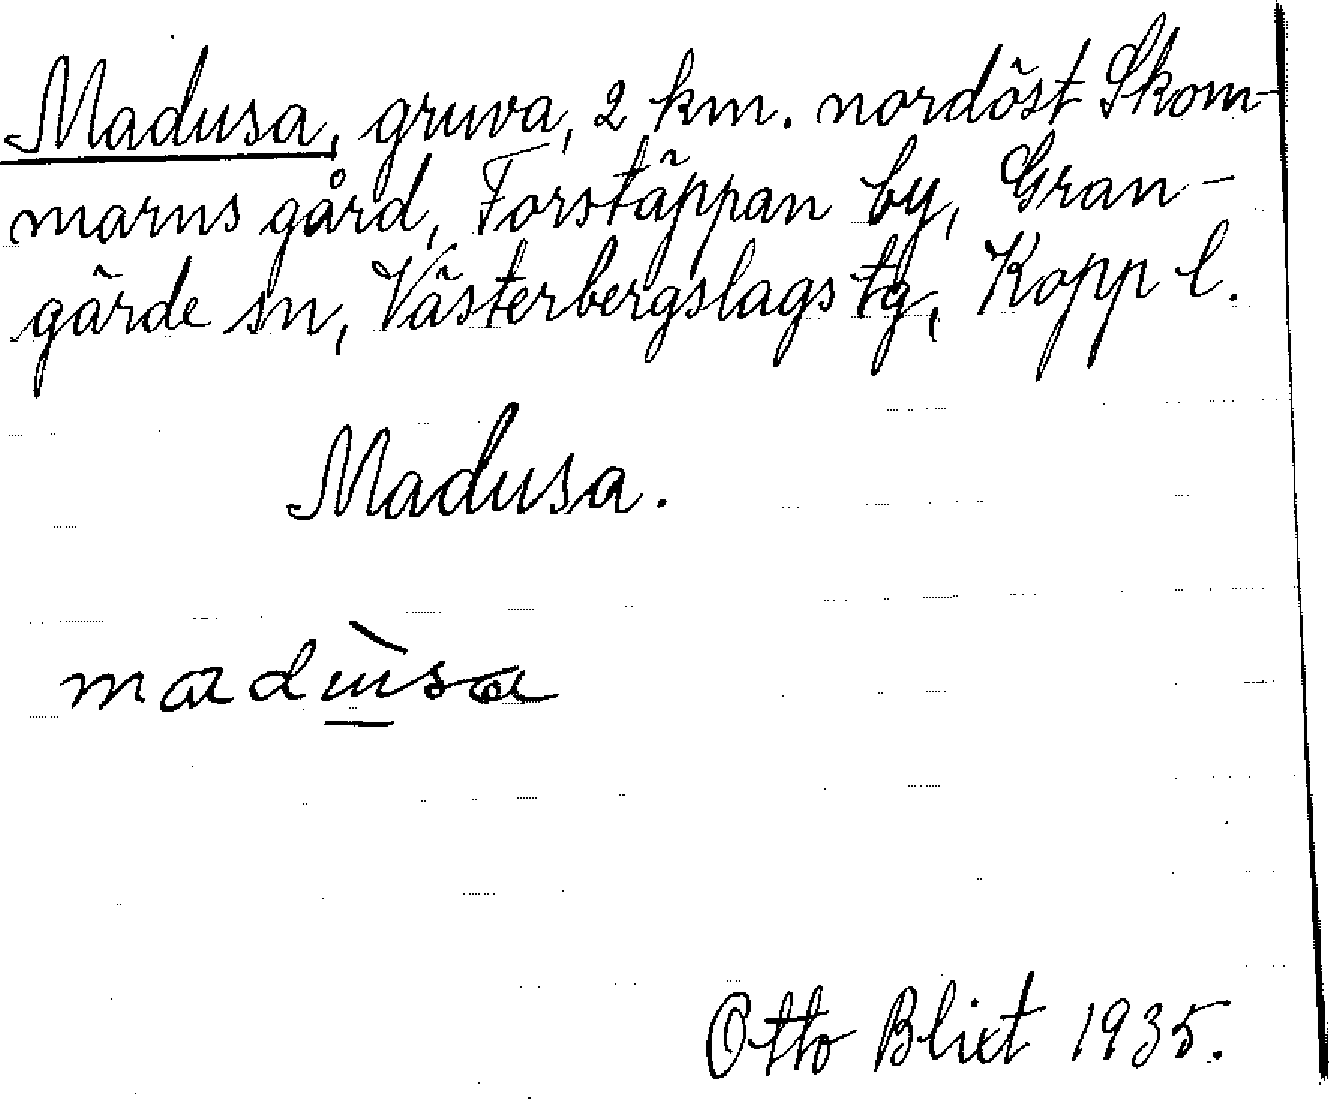 Madusa, gruva, 2 km. nordöst Skom-
marns gård, Forstäppan by, Gran-
gärde sn, Västerbergslags tg, Kopp l.
Madusa.
madùsa
Otto Blixt 1935.